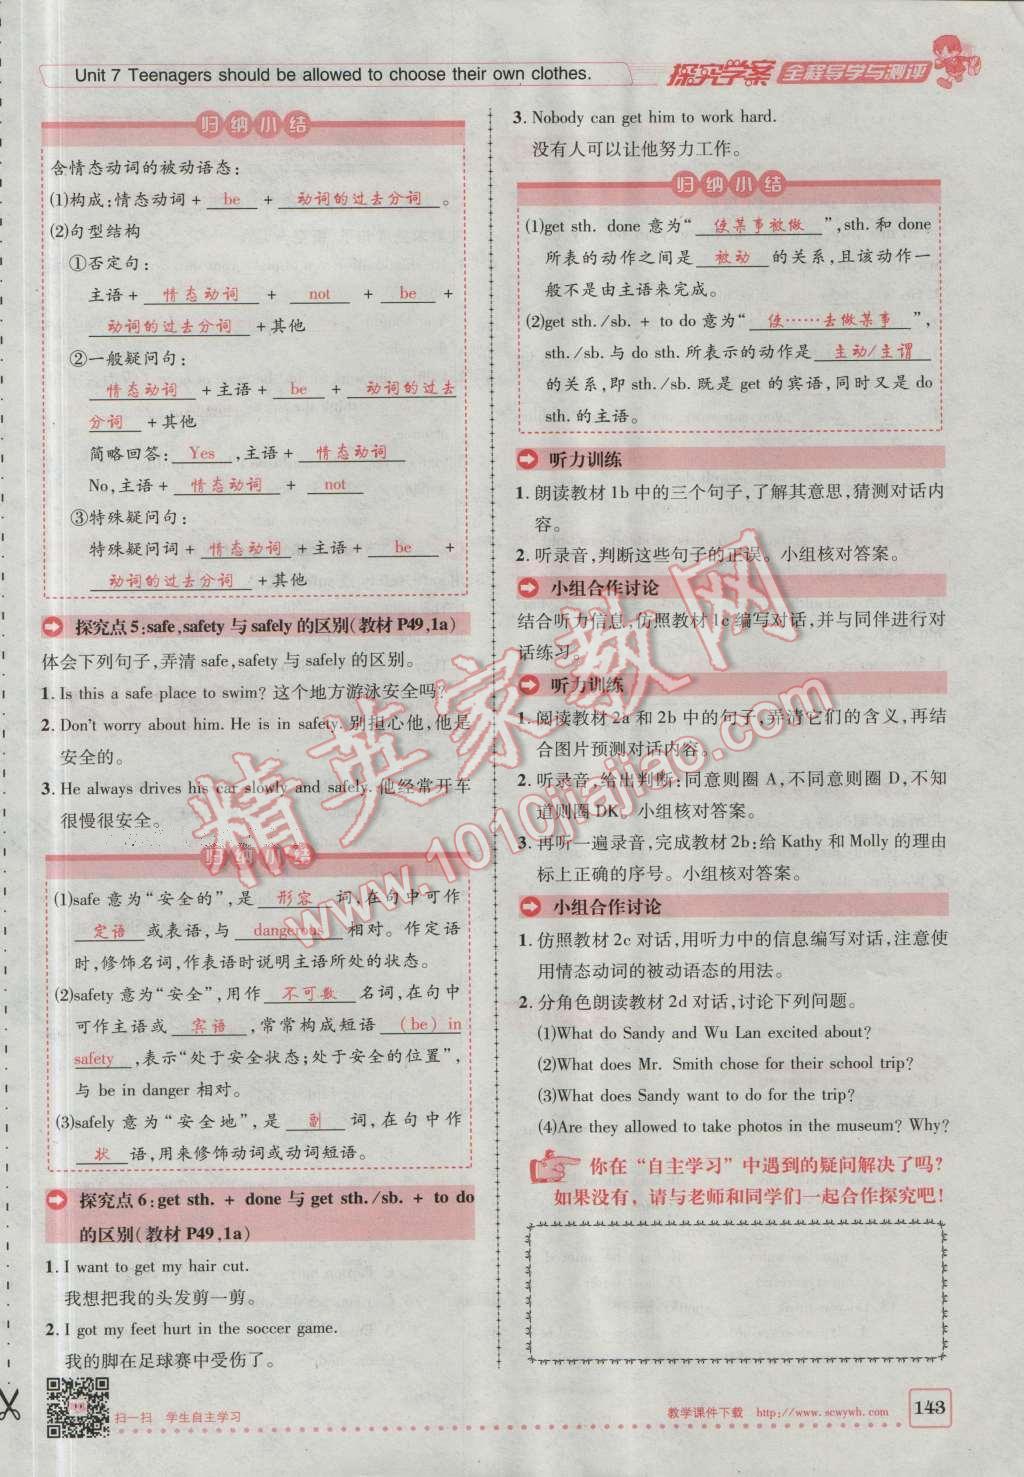 Unit 7 Teenagers should be allowed to choose their own clothes.
探究学案 全程导学与测评
归纳小结
含情态动词的被动语态:
(1)构成:情态动词+ be + 动词的过去分词 。
(2)句型结构
①否定句:
主语+ 情态动词 + not + be +
动词的过去分词 +其他
②一般疑问句:
情态动词 +主语+ be + 动词的过去
分词 +其他
简略回答: Yes ,主语+ 情态动词
No,主语+ 情态动词 + not
③特殊疑问句:
特殊疑问词+ 情态动词 +主语+ be +
动词的过去分词 +其他
探究点5:safe,safety与safely的区别(教材P49,1a)
体会下列句子,弄清safe,safety与safely的区别。
1. Is this a safe place to swim? 这个地方游泳安全吗?
2. Don't worry about him. He is in safety. 别担心他,他是
安全的。
3. He always drives his car slowly and safely. 他经常开车
很慢很安全。
归纳小结
(1)safe意为“安全的”,是 形容 词,在句中可作
定语 或表语,与 dangerous 相对。作定语
时,修饰名词,作表语时说明主语所处的状态。
(2)safety意为“安全”,用作 不可数 名词,在句中
可作主语或 宾语 ,常常构成短语 (be) in
safety ,表示“处于安全状态;处于安全的位置”,
与be in danger相对。
(3)safely意为“安全地”,是 副 词,在句中作
状 语,用来修饰动词或动词短语。
探究点6:get sth. + done与get sth./sb. + to do
的区别(教材P49,1a)
1. I want to get my hair cut.
我想把我的头发剪一剪。
2. I got my feet hurt in the soccer game.
我的脚在足球赛中受伤了。
3. Nobody can get him to work hard.
没有人可以让他努力工作。
归纳小结
(1)get sth. done意为“ 使某事被做 ”,sth.和done
所表的动作之间是 被动 的关系,且该动作一
般不是由主语来完成。
(2)get sth./sb. + to do意为“ 使……去做某事 ”,
sth./sb.与do sth.所表示的动作是 主动/主谓
的关系,即sth./sb.既是get的宾语,同时又是do
sth.的主语。
听力训练
1. 朗读教材1b中的三个句子,了解其意思,猜测对话内
容。
2. 听录音,判断这些句子的正误。小组核对答案。
小组合作讨论
结合听力信息,仿照教材1c编写对话,并与同伴进行对
话练习。
听力训练
1. 阅读教材2a和2b中的句子,弄清它们的含义,再结
合图片预测对话内容。
2. 听录音,给出判断:同意则圈A,不同意圈D,不知
道则圈DK。小组核对答案。
3. 再听一遍录音,完成教材2b:给Kathy和Molly的理由
标上正确的序号。小组核对答案。
小组合作讨论
1. 仿照教材2c对话,用听力中的信息编写对话,注意使
用情态动词的被动语态的用法。
2. 分角色朗读教材2d对话,讨论下列问题。
(1)What do Sandy and Wu Lan excited about?
(2)What does Mr. Smith chose for their school trip?
(3)What does Sandy want to do for the trip?
(4)Are they allowed to take photos in the museum? Why?
你在“自主学习”中遇到的疑问解决了吗?
如果没有,请与老师和同学们一起合作探究吧!
扫一扫 学生自主学习
教学课件下载 http://www.scwywh.com
143
精英家教网
www.1010jiajiao.com